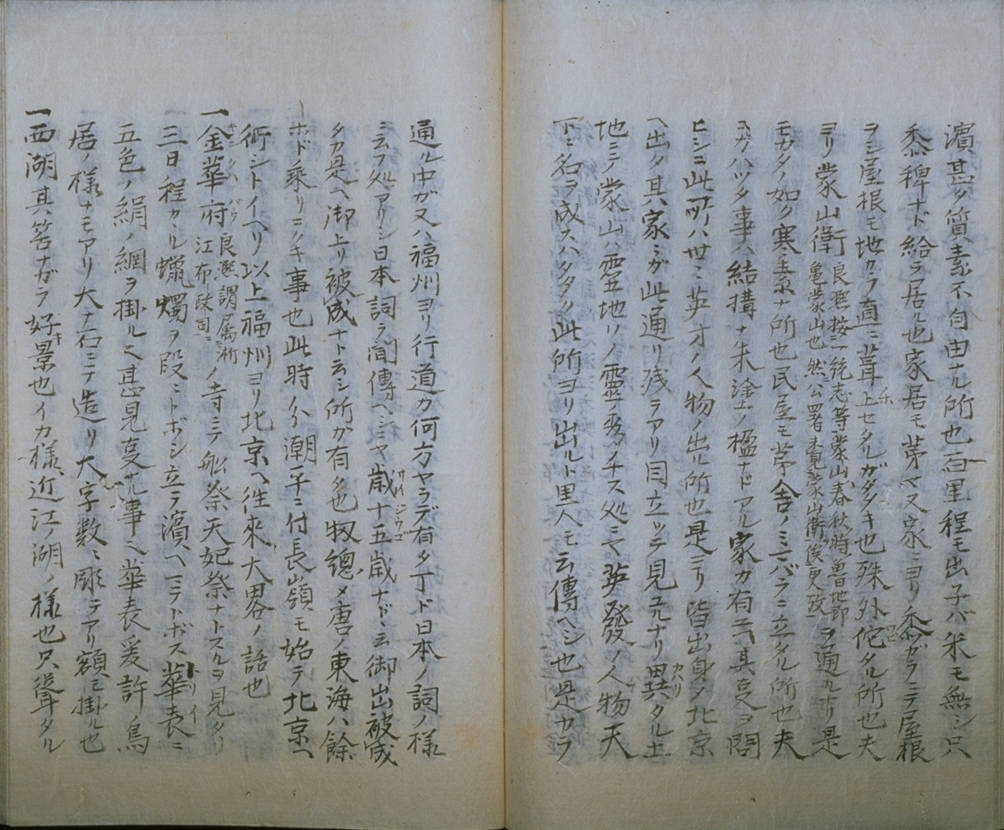 濵甚タ質素不自由ナル所也百里程モ出子バ米モ無シ只
黍稗ナド給ラ居ル也家居モ茅マス家ニヨリ黍ガラニテ屋根
ヲシ屋根モ地カラ直ニ葺上セタルガタタキ也殊外侘タル所也夫
ヨリ蒙山衛良熙按一統志等蒙山春秋時魯地即
亀蒙山也然公署蒙山衛後更改ヲ通ルナリ是
モカタノ如ク寒素ナ所也民屋モ茅舍ノミバラニ立タル所也夫
事ハ結構ナ朱塗ノ楹ナドアル家カ有其是ヲ問
ヒシニ此所ハ世ニ英才ノ人物ノ出ル所也是ヨリ皆出身シ北京
ヘ出タ其家ミガ此通リ残ラアリ目立ッテ見ユルナリ異タル土
地ニテ蒙山ハ霊地ノ靈ノ処ニ英發ノ人物天
下ニ名ヲ成スハ此所ヨリ出ルト里人モ云傳ヘシ也是カラ
通ル中ガ又ハ福州ヨリ行道カ何方ヤラデ有タ丁ド日本ノ詞ノ様
ニ云フ処アリシ日本詞ラ聞傳ヘシニヤ歳十五歳ナドト云御出被成
タカ是ヘ御上リ被成ナト云シ所カ有タ也扨總メ唐ノ東海ハ餘
ホド乗リニクキ事也此時分潮平ニ付長嶺モ始テ北京ヘ
術シトイヘリ以上福州ヨリ北京ヘ往來大畧ノ話也
一金華府良熙謂屬浙
江布政司ノ寺ニテ船祭天妃祭ナトスルヲ見タリ
三日程カル蝋燭ヲ段ミトボシ立ラ濵ヘミラトボス華表ニ
五色ノ絹ノ綱ヲ掛ル又甚見叓ナル事也華表爰許鳥
居ノ様ナモアリ大キナ石ニテ造リ大字数ミ彫テアリ額モ掛ル也
一西湖其答ナガラ好景也イカ様近江ノ湖ノ様也只聳タル